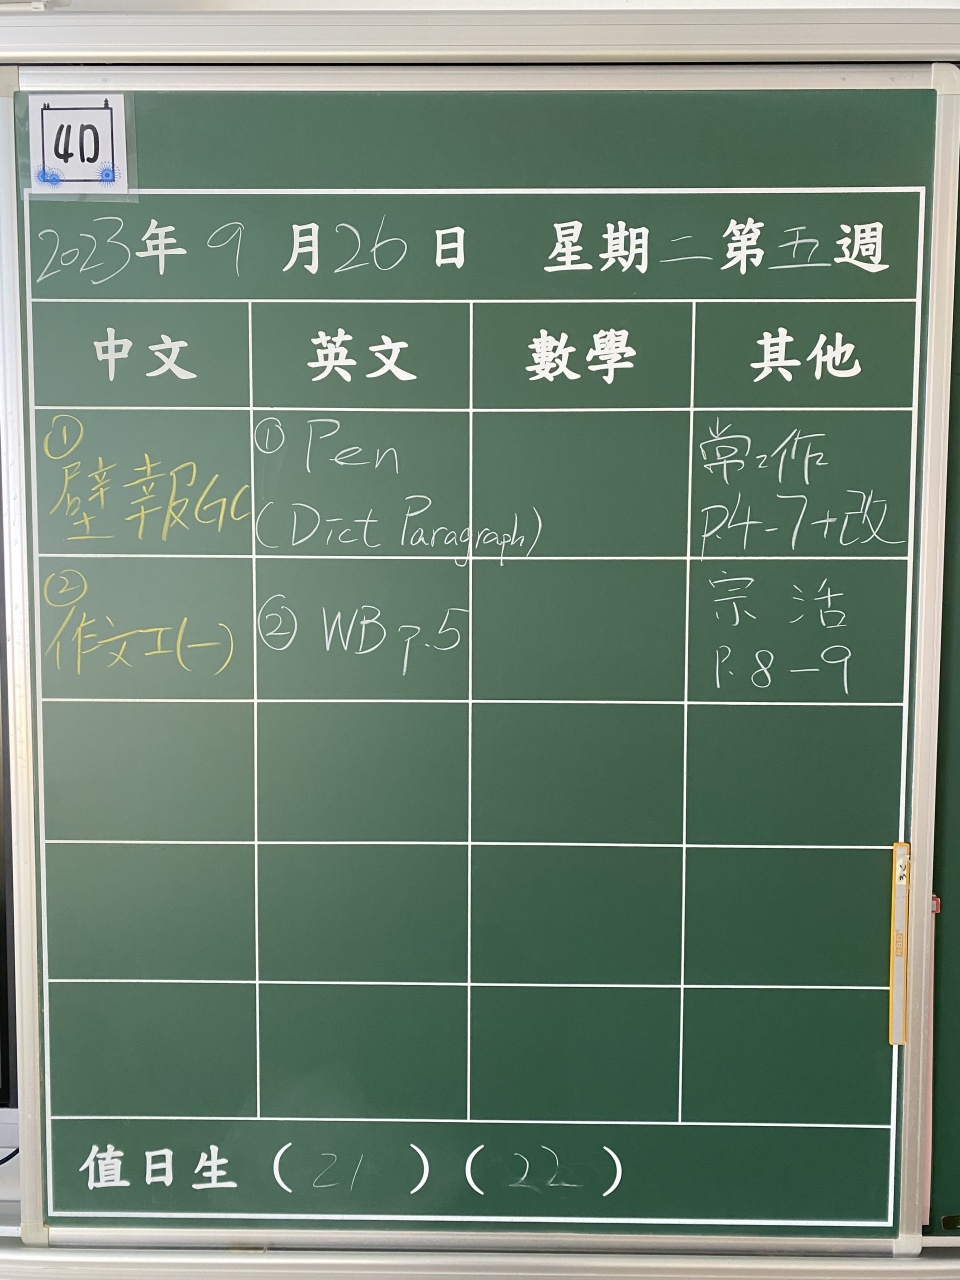 4D
2023年9月26日 星期二第五週
中文 英文 數學 其他
① 壁報GC
① Pen
(Dict Paragraph)
常作
p.4-7+改
② 作文工(一)
② WB p.5
宗 活
P.8-9
值日生(21)(22)